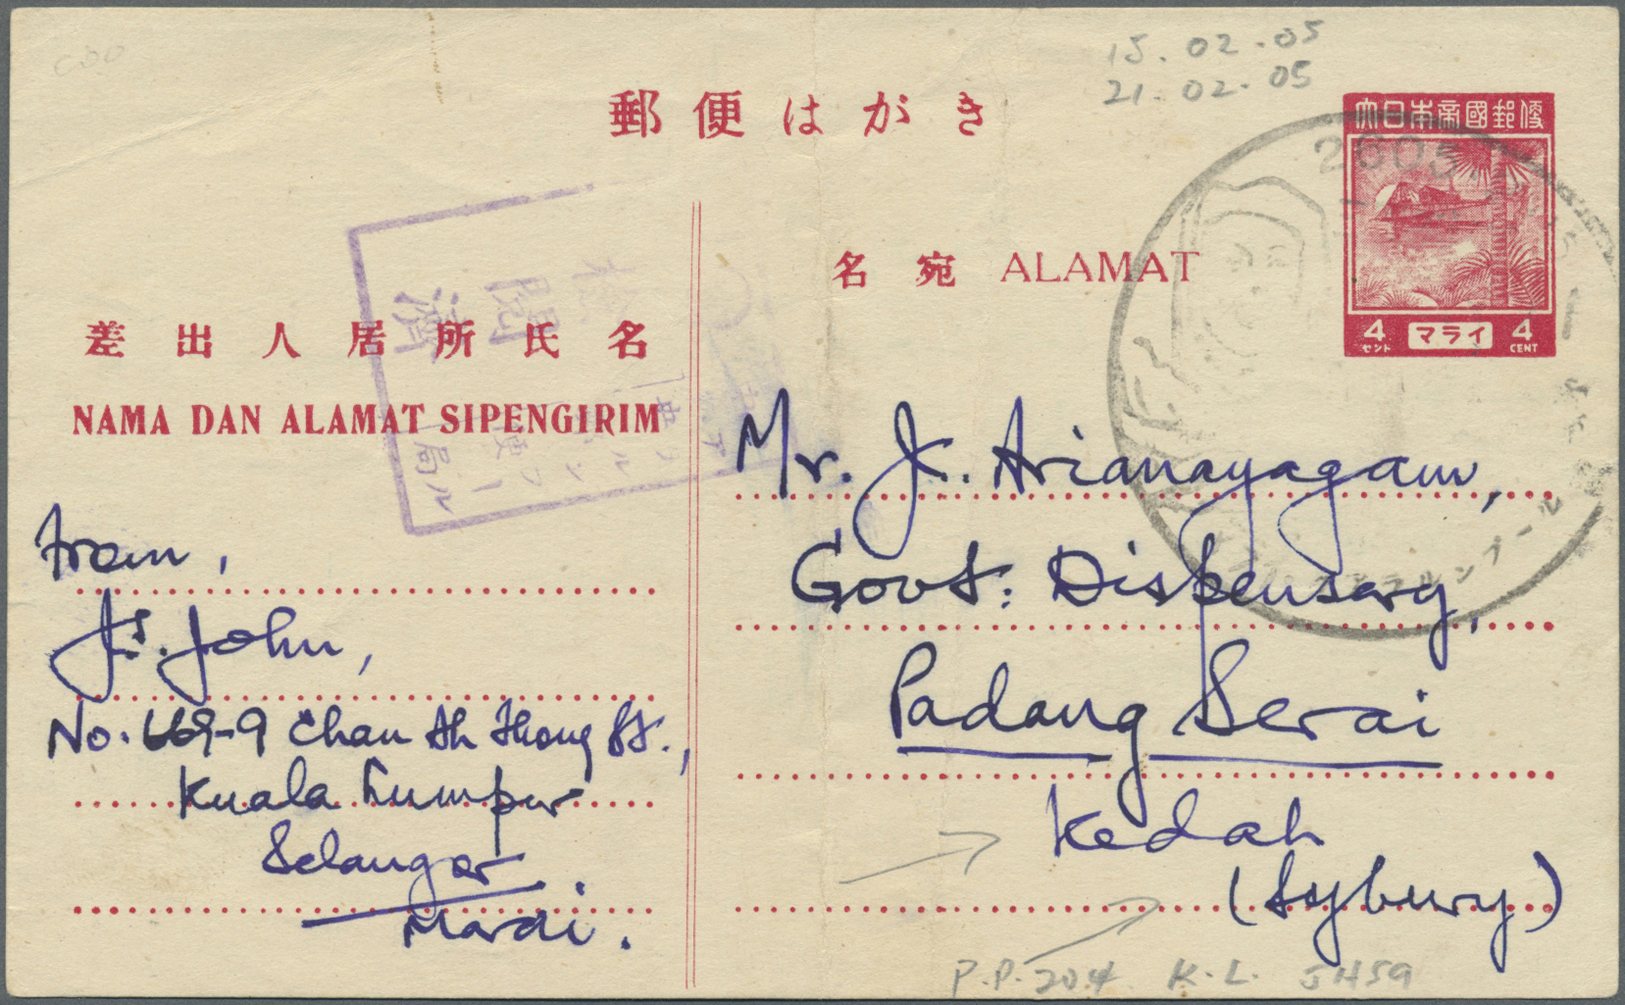 15.02.05
21.02.05
郵便はがき
大日本帝國郵便
2605
4 セント マライ 4 CENT
名宛 ALAMAT
検閲済
局
差出人居所氏名
NAMA DAN ALAMAT SIPENGIRIM
from,
Js. John,
No. 669-9 Chan Ah Thong St.,
Kuala Lumpur
Selangor
Marai.
Mr. Js. Arianayagam,
Govt: Dispensary,
Padang Serai
Kedah
(Sybury)
P.P. 204 K.L. JH59